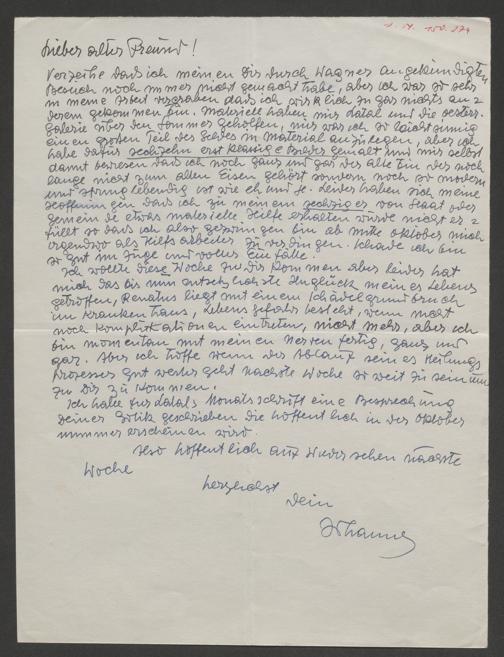 I. N. 150.874
Lieber alter Freund!
Verzeihe dass ich meinen Dir durch Wagner angekündigten
Besuch noch immer nicht gemacht habe, aber ich war so sehr
in meine Arbeit vergraben dass ich wirklich zu gar nichts an=
derem gekommen bin. Materiell haben mir datal und die oesterr.
Galerie über den Sommer geholfen, nur war ich so leichtsinnig
einen großen Teil des Geldes in Material anzulegen, aber ich
habe dafür sechzehn erstklassige Bilder gemalt und mir selbst
damit bewiesen dass ich noch ganz und gar der alte bin der noch
lange nicht zum alten Eisen gehört sondern noch so modern
und springlebendig ist wie eh und je. Leider haben sich meine
Hoffnungen dass ich zu meinem sechziger von Staat oder
Gemeinde etwas materielle Hilfe erhalten würde nicht er=
füllt so dass ich also gezwungen bin ab mitte Oktober mich
irgendwo als Hilfsarbeiter zu verdingen. Schade ich bin
so gut im Zuge und voller Einfälle.
Ich wollte diese Woche zu Dir kommen aber leider hat
mich das bis nun entsetzlichste Unglück meines Lebens
getroffen, Renatus liegt mit einem Schädelgrundbruch
im Krankenhaus, Lebensgefahr besteht, wenn nicht
noch Komplikationen eintreten, nicht mehr, aber ich
bin momentan mit meinen Nerven fertig, ganz und
gar. Aber ich hoffe wenn der Ablauf seines Heilungs
prozesses gut weiter geht nächste Woche so weit zu sein um
zu Dir zu kommen.
Ich habe für datals Monatsschrift eine Besprechung
Deiner Gotik geschrieben die hoffentlich in der Oktober
nummer erscheinen wird.
Also hoffentlich auf Wiedersehen nächste
Woche
herzlichst
Dein
Johannes